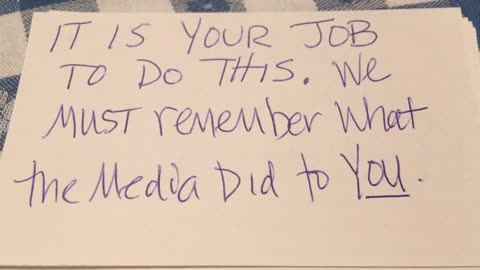 IT IS YOUR JOB
TO DO THIS. We
MUST remember What
the Media Did to You.